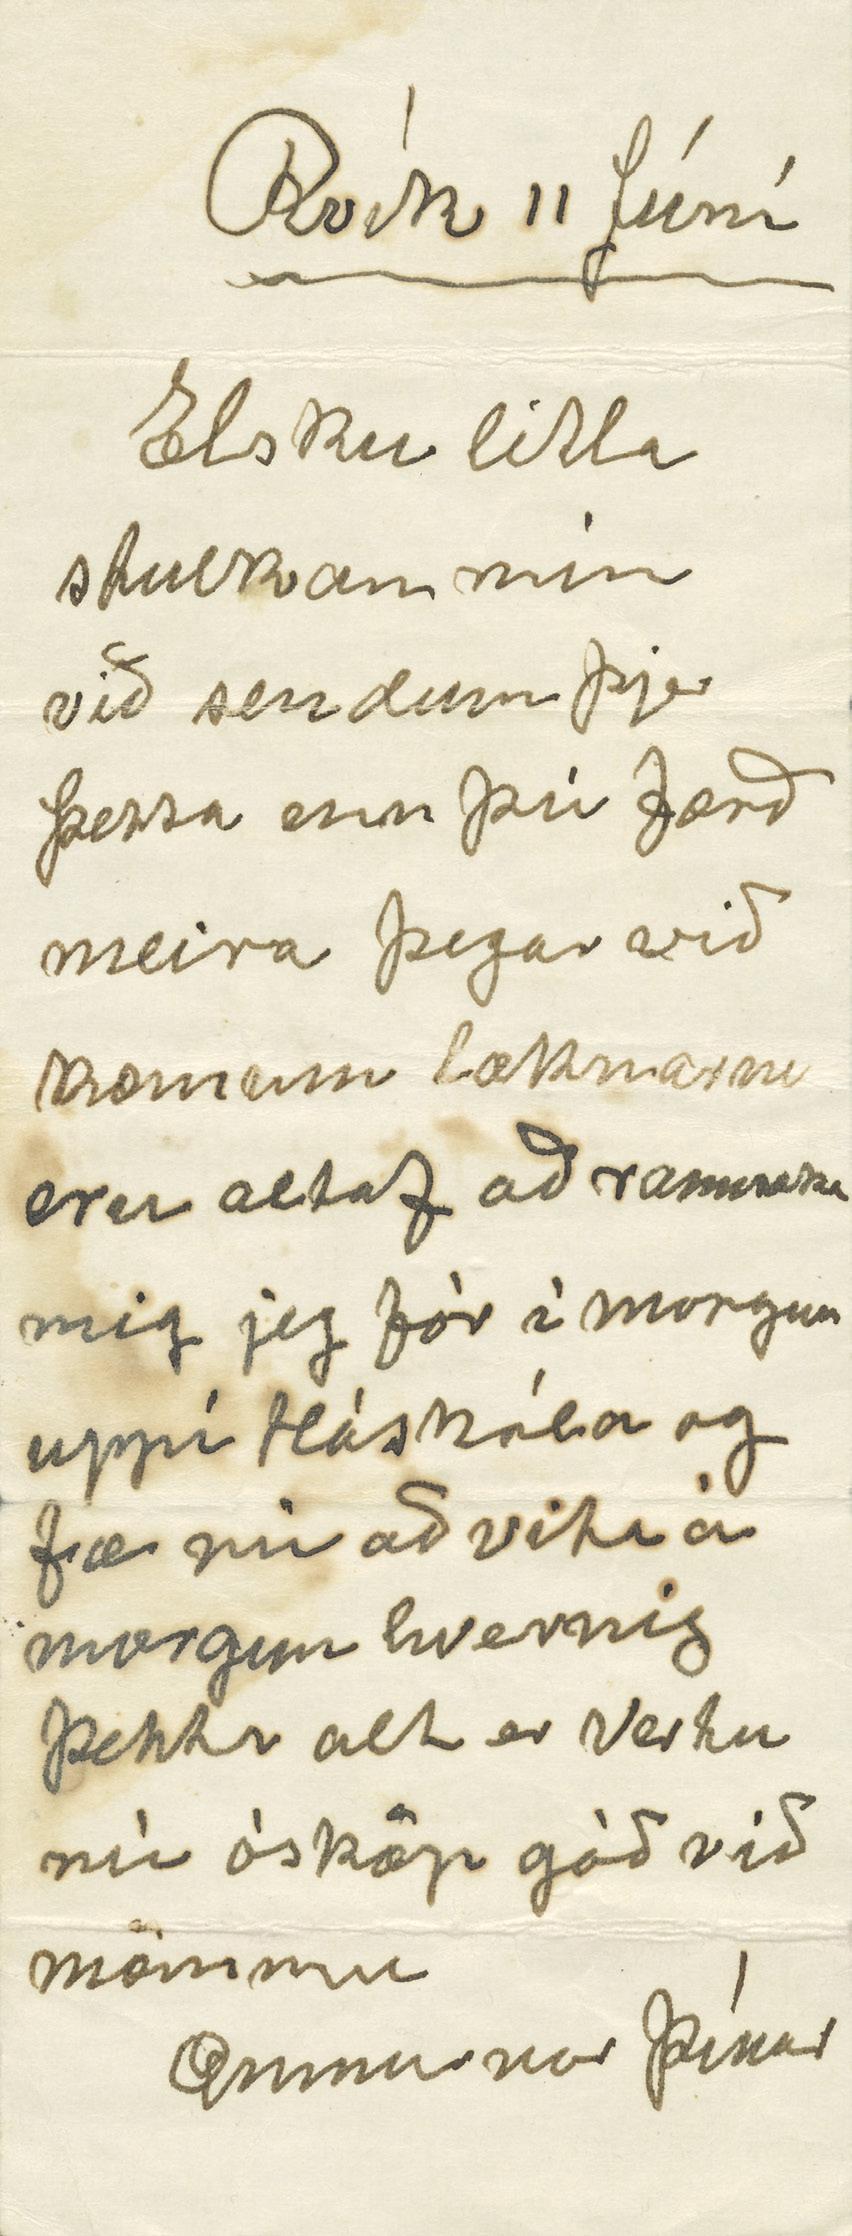 Rvík 11 Júní
Elsku litla
stulkan mín
við sendum þjer
þetta enn þú færð
meira þegar við
komum læknarnir
eru altaf að rannsaka
mig jeg fór í morgun
uppí Háskóla og
fæ nú að vita á
morgun hvernig
þettta alt er Vertu
nú ósköp góð við
mömmu
Ömmurnar þínar